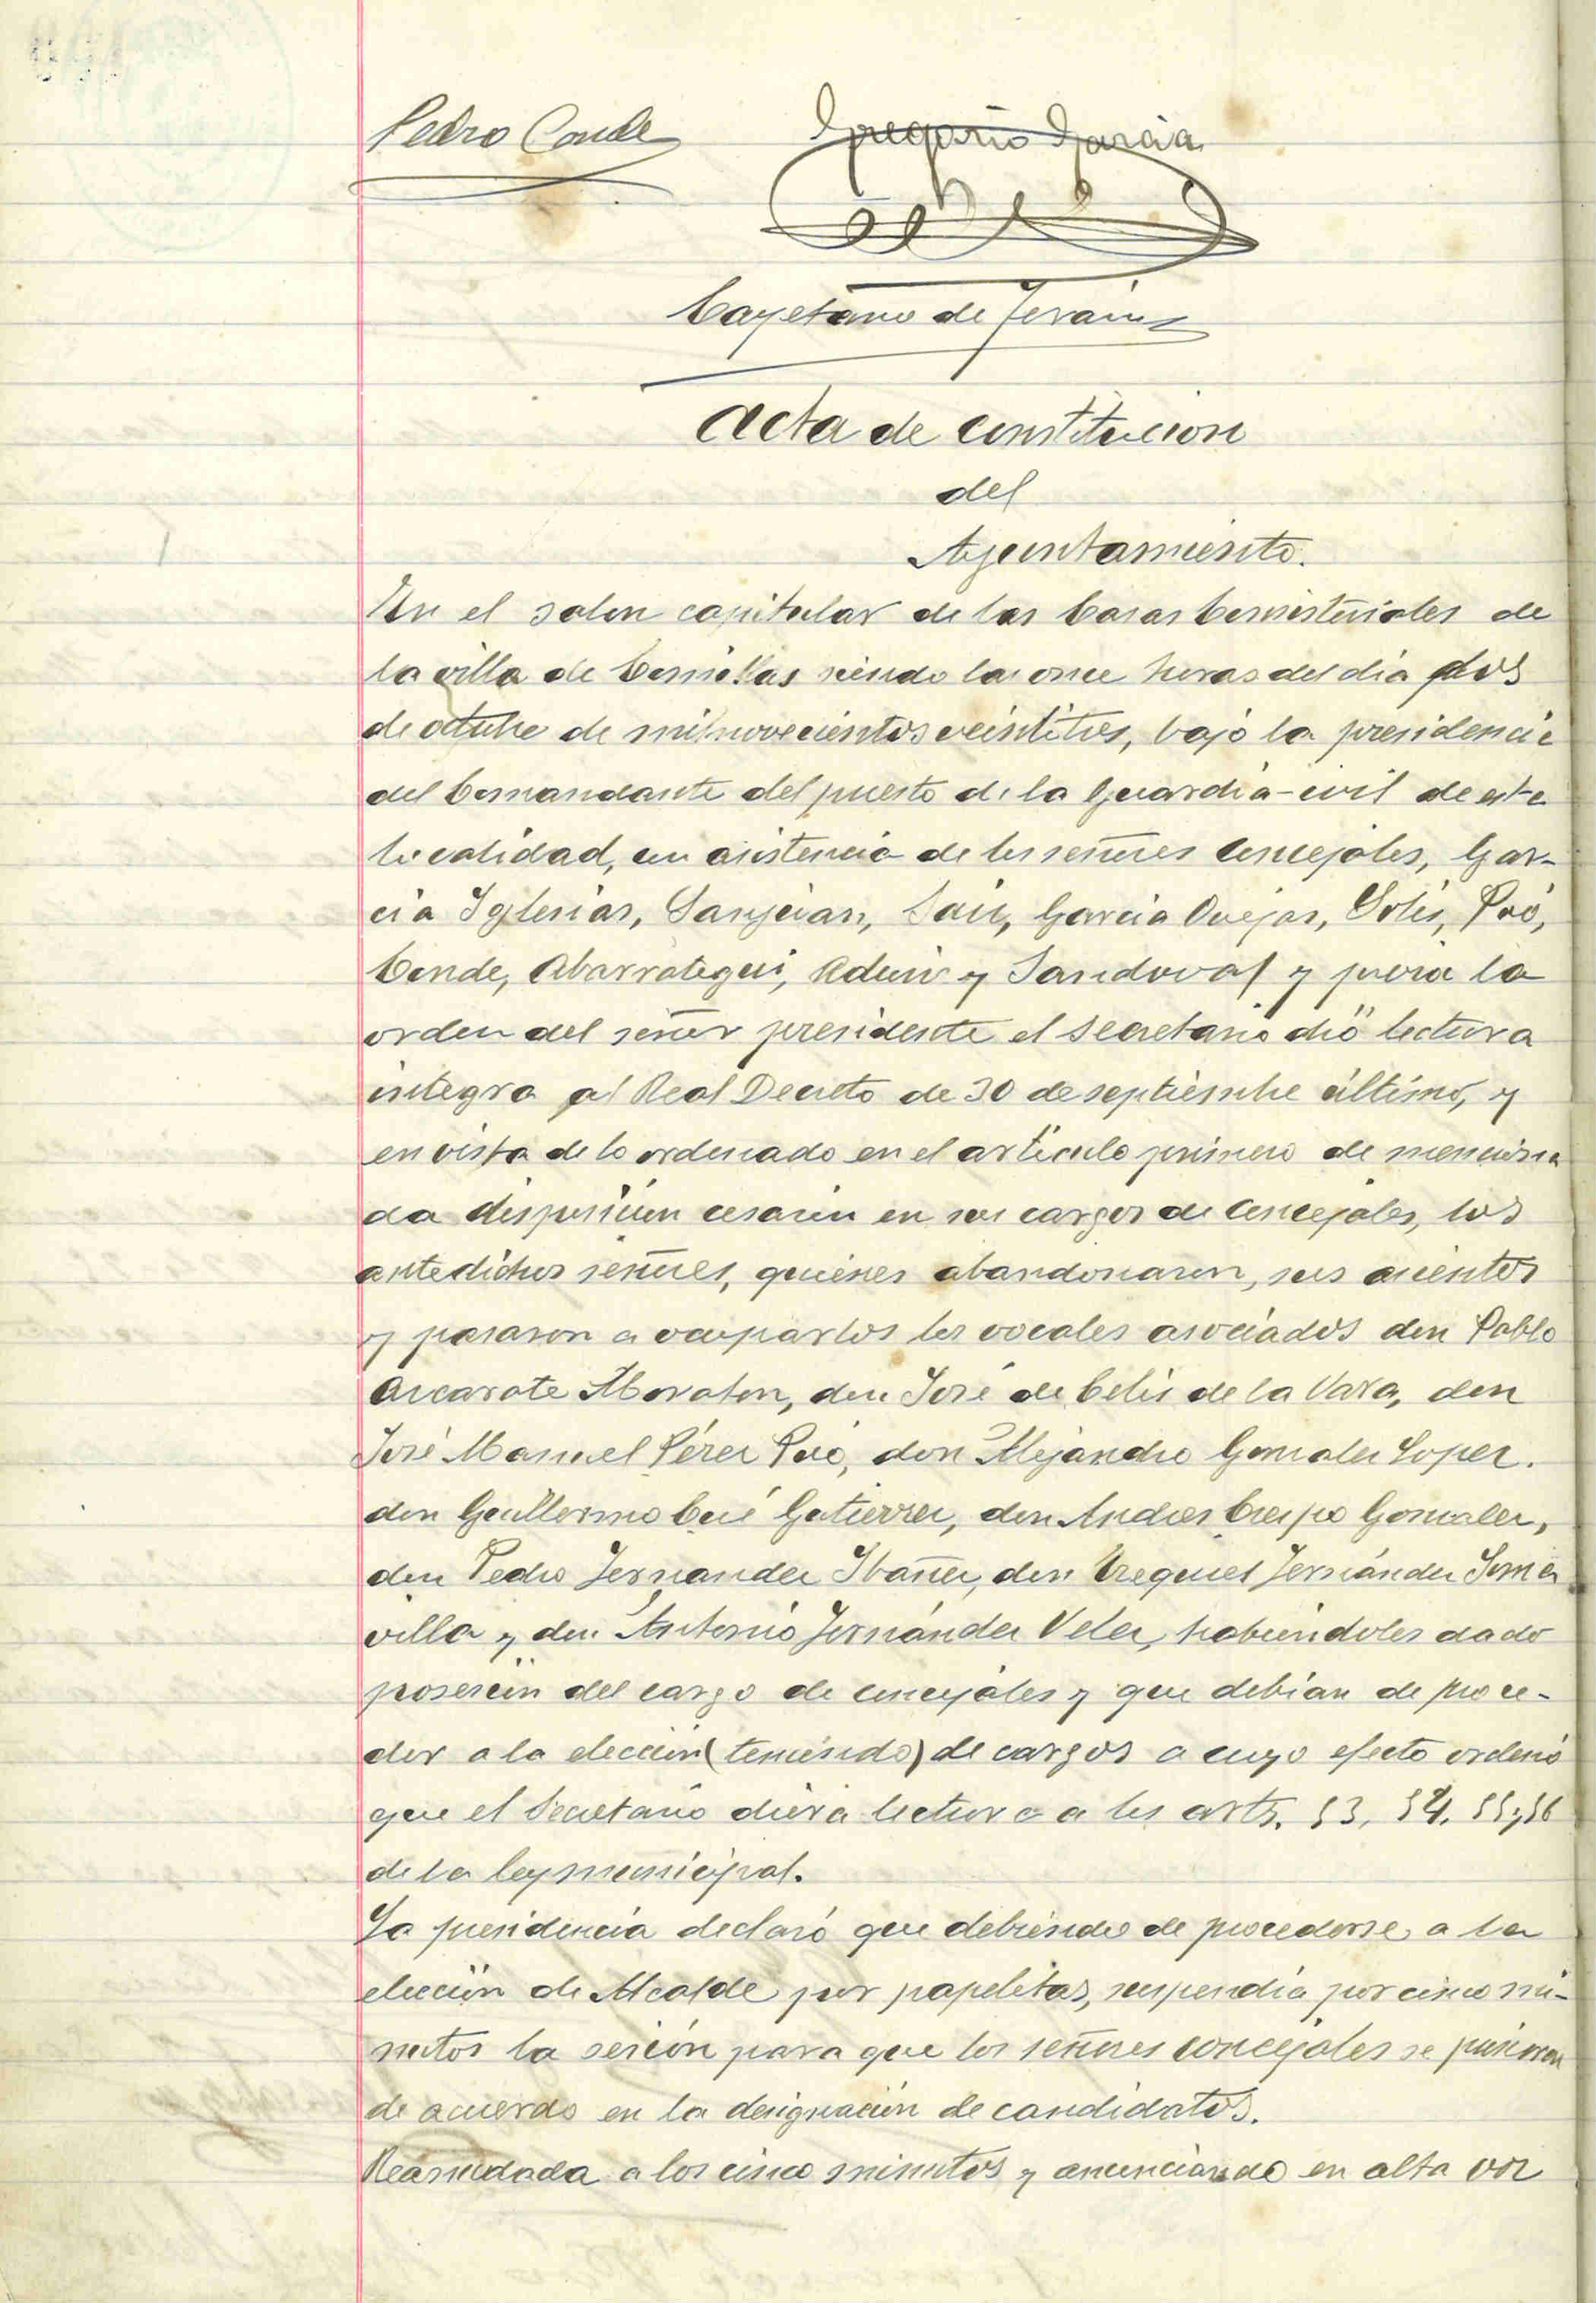 Pedro Conde
Gregorio Garcia
Cayetano de Teran
Acta de constitucion
del
Ayuntamiento.
En el salon capitular de las Casas Consistoriales de
la villa de Comillas siendo las once horas del dia dos
de octubre de mil novecientos veintitres, bajo la presidencia
del Comandante del puesto de la Guardia-civil de esta
localidad, con asistencia de los señores Concejales, Gar-
cia Iglesias, Sanjuan, Saiz, Garcia Ovejas, Solis, Poó,
Conde, Abarrategui, y Sandoval y previa la
orden del señor presidente el secretario dió lectura
integra al Real Decreto de 30 de septiembre último, y
en vista de lo ordenado en el articulo primero de menciona
da disposicion cesaron en sus cargos de Concejales, los
antedichos señores, quienes abandonaron, sus asientos
y pasaron a ocuparlos los vocales asociados don Pablo
Arcarate don José de Celis de la Vara, don
José Manuel Pérez Poó, don Alejandro Gonzalez Lopez.
don Guillermo Cué Gutierrez, don Andres Crespo Gonzalez,
don Pedro Fernandez Ibañez, don Ezequiel Fernández Soma
villa y don Antonio Fernández Velez, habiendoles dado
posesion del cargo de concejales y que debian de proce-
der a la eleccion (teniendo) de cargos a cuyo efecto ordenó
que el Secretario diera lectura a los arts. 53, 54, 55 y 56
de la ley municipal.
La presidencia declaró que debiendo de procederse a la
elección de Alcalde por papeletas, suspendia por cinco mi-
nutos la sesión para que los señores concejales se pusieran
de acuerdo en la designación de candidatos.
Reanudada a los cinco minutos y anunciando en alta voz